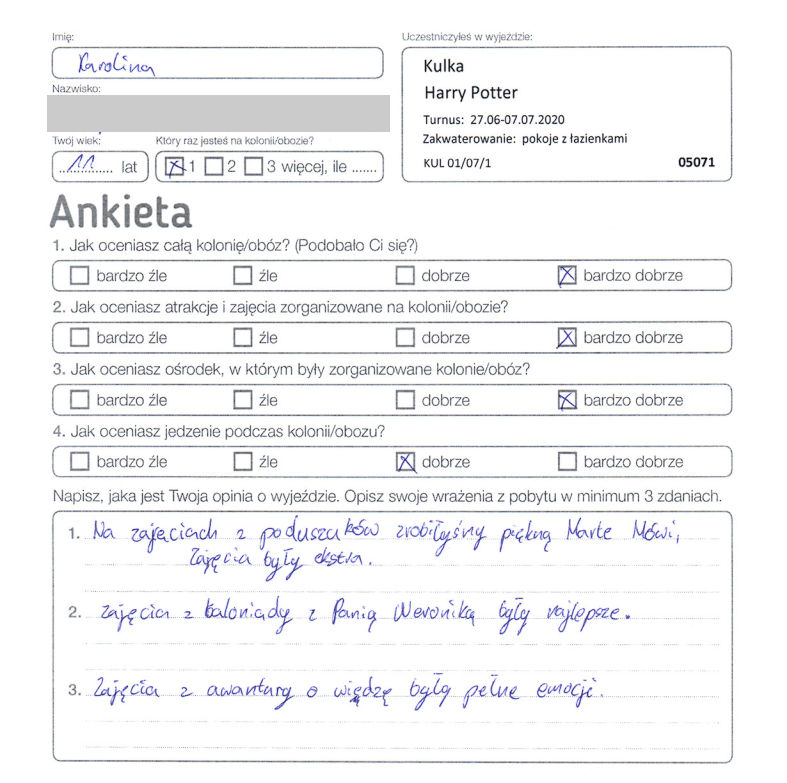 Imię:
Karolina
Nazwisko:
Twój wiek:
11 lat
Który raz jesteś na kolonii/obozie?
1 2 3 więcej, ile .......
Uczestniczyłeś w wyjeździe:
Kulka
Harry Potter
Turnus: 27.06-07.07.2020
Zakwaterowanie: pokoje z łazienkami
KUL 01/07/1 05071
Ankieta
1. Jak oceniasz całą kolonię/obóz? (Podobało Ci się?)
bardzo źle źle dobrze bardzo dobrze
2. Jak oceniasz atrakcje i zajęcia zorganizowane na kolonii/obozie?
bardzo źle źle dobrze bardzo dobrze
3. Jak oceniasz ośrodek, w którym były zorganizowane kolonie/obóz?
bardzo źle źle dobrze bardzo dobrze
4. Jak oceniasz jedzenie podczas kolonii/obozu?
bardzo źle źle dobrze bardzo dobrze
Napisz, jaka jest Twoja opinia o wyjeździe. Opisz swoje wrażenia z pobytu w minimum 3 zdaniach.
1. Na zajęciach z poduszaków zrobiłyśmy piękną Marte Mówi,
Zajęcia były ekstra.
2. Zajęcia z baloniady z Panią Weroniką były najlepsze.
3. Zajęcia z awantury o więdzę były pełne emocji.